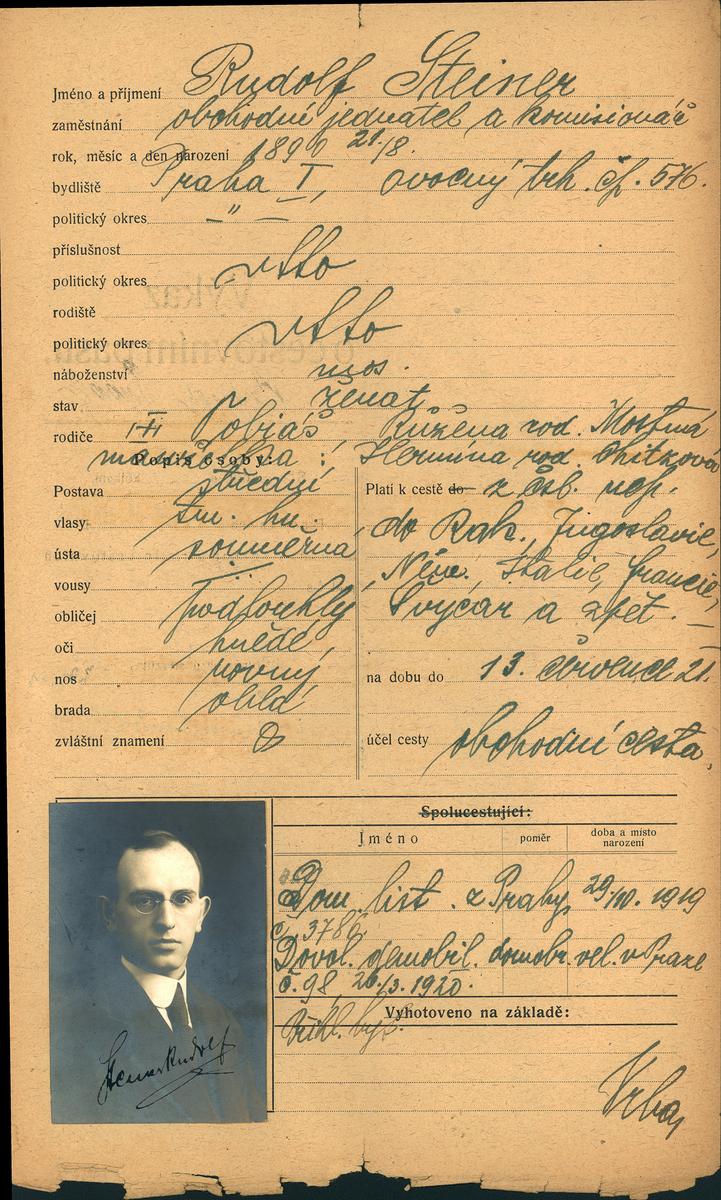 Jméno a příjmení Rudolf Steiner
zaměstnání obchodní jednatel a komisionář
rok, měsíc a den narození 1890 21./8.
bydliště Praha I, ovocný trh. čp. 576.
politický okres — " —
příslušnost
politický okres dtto
rodiště
politický okres dtto
náboženství mos.
stav ženat
rodiče Tobiáš Růžena roz. Mostná
manželka : Hermína roz.
Popis osoby:
Postava střední
vlasy tm. hn.
ústa souměrná
vousy
obličej podlouhlý
oči hnědé
nos rovný
brada oblá
zvláštní znamení
Platí k cestě do z čsl. rep.
do Rak., Jugoslavie,
Něm., Italie, Francie,
Švýcar a zpět. —
na dobu do 13. července 21.
účel cesty obchodní cesta.
Spolucestující:
Jméno poměr doba a místo narození
Dom. list. z Prahy 29/10. 1919
č. 3786
Dovol. demobil. domobr. vel. v Praze
č. 98 26./3. 1920.
Vyhotoveno na základě:
Přihl. byt.
Vrba
Steiner Rudolf